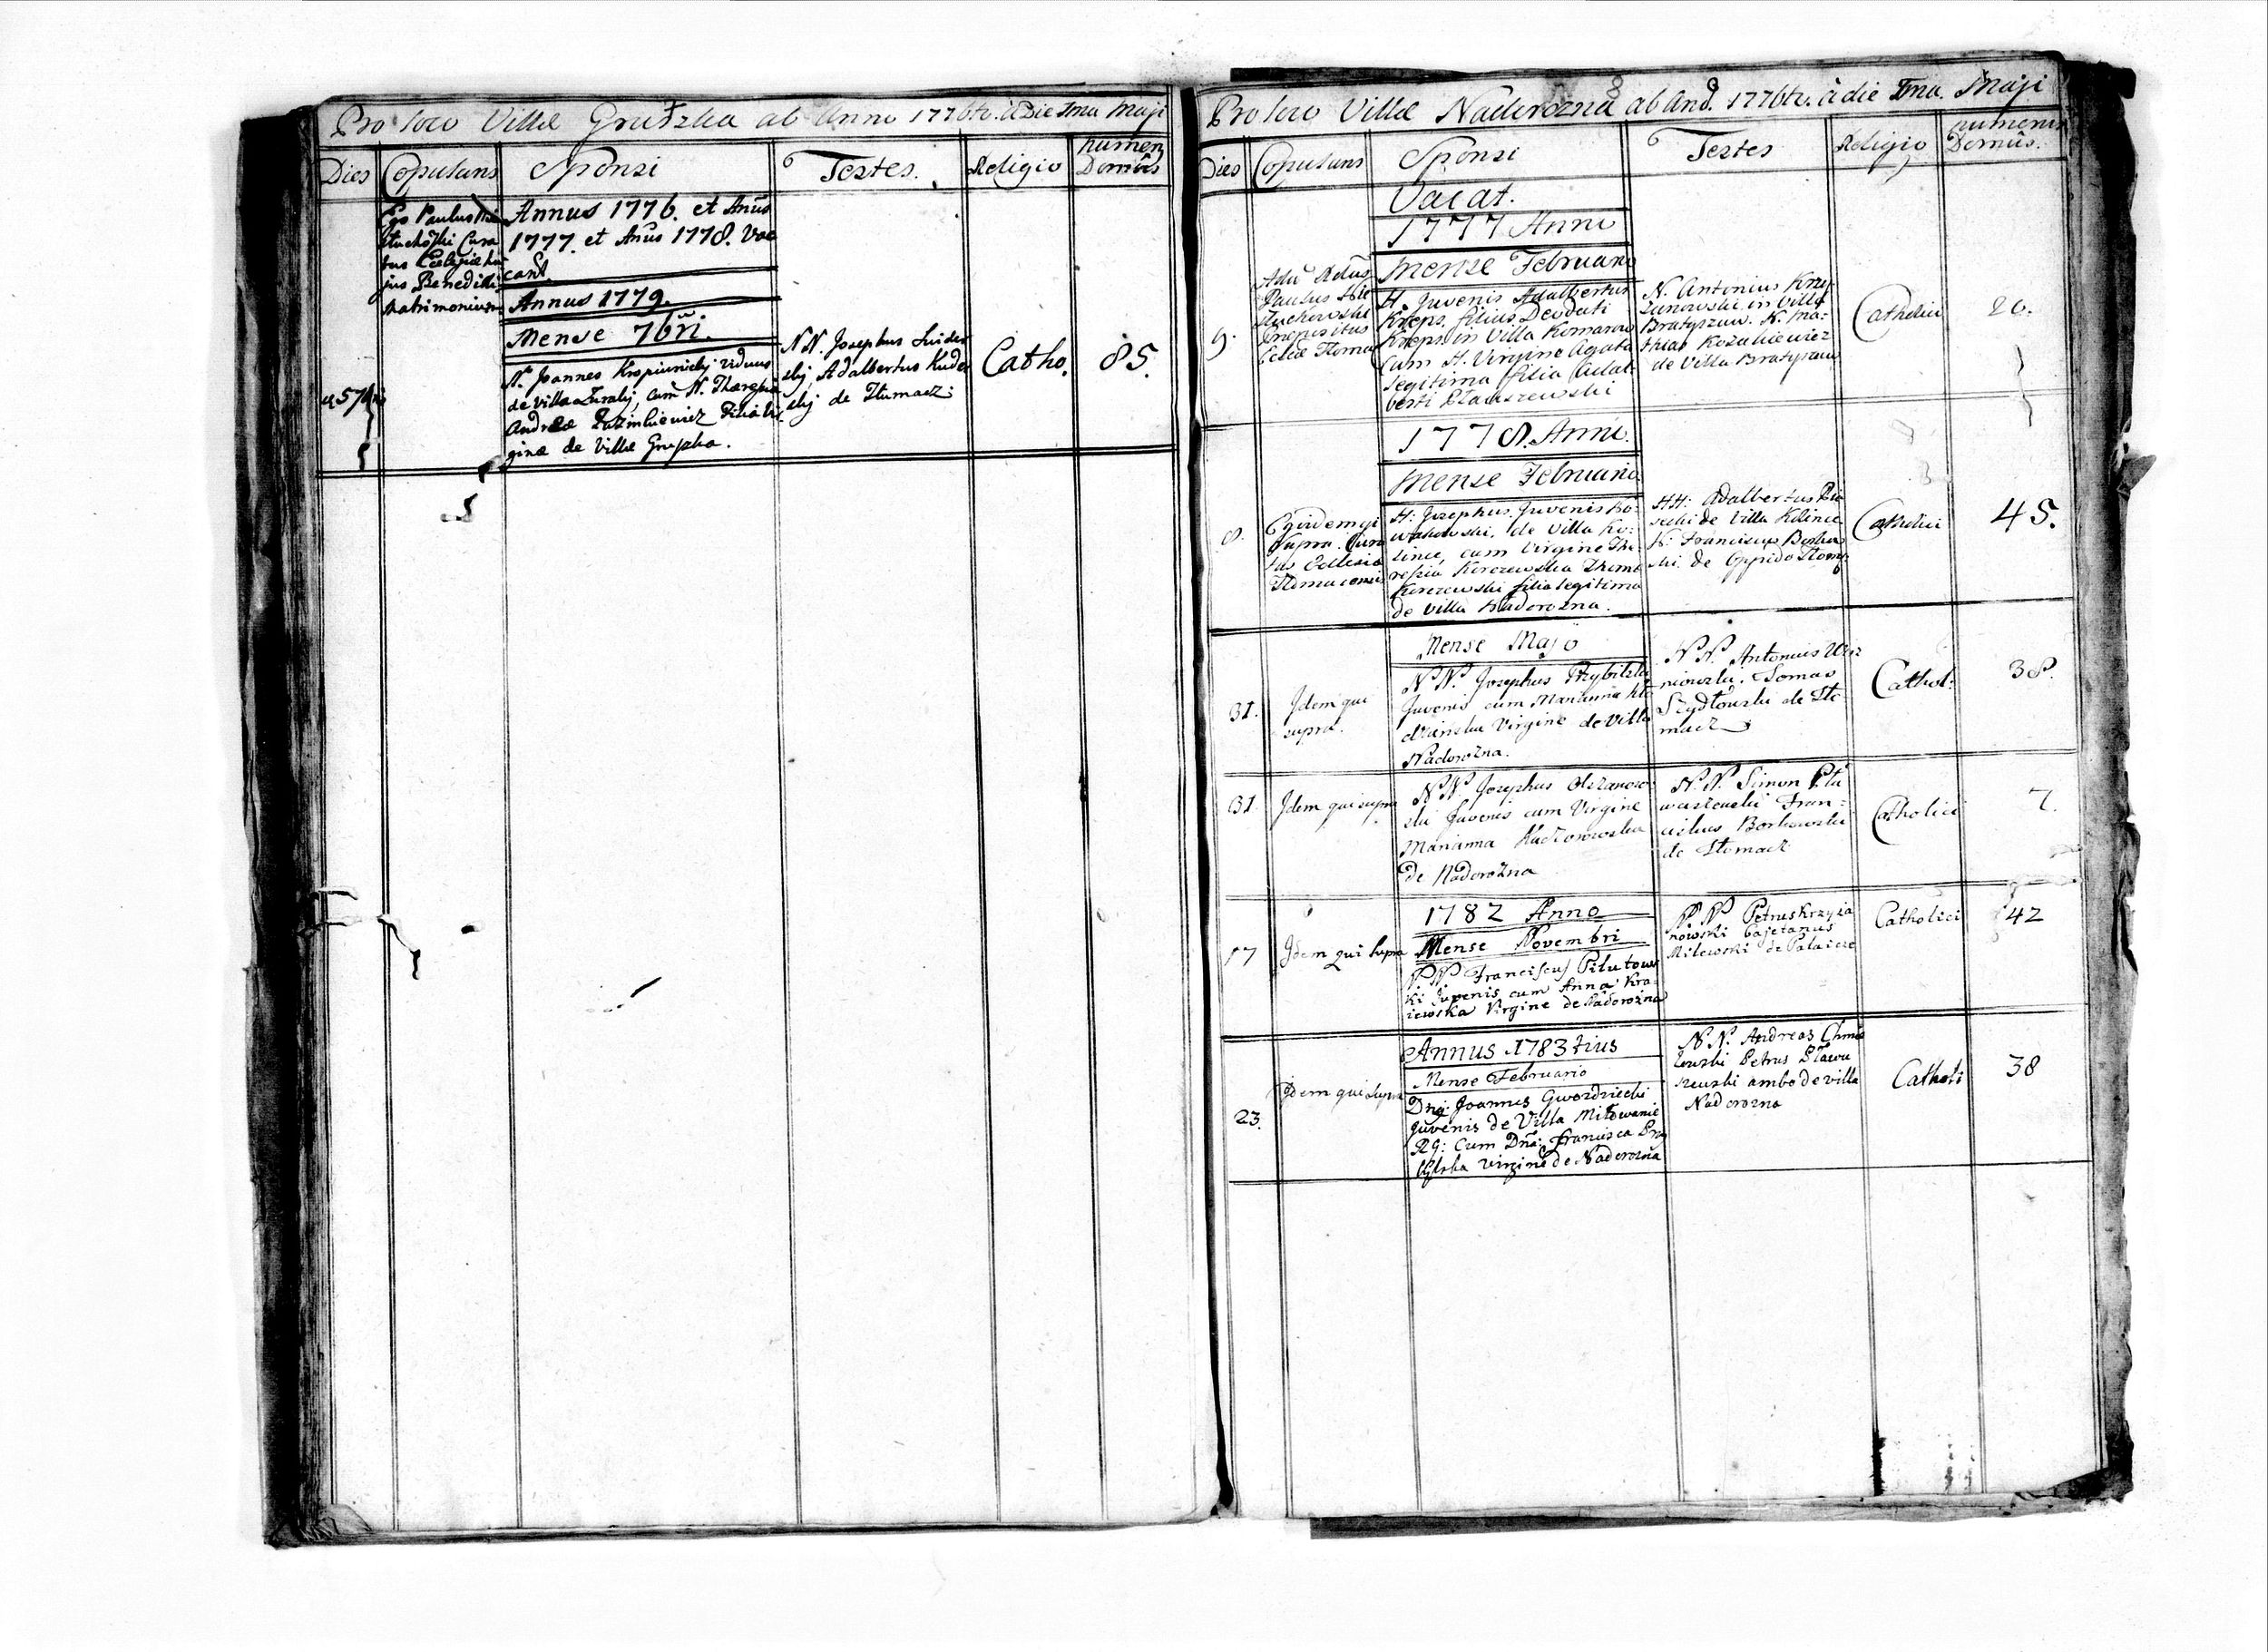 Pro loco Villæ Gruszka ab Anno 1776to. a Die 1ma Maji
Dies Copulans Sponsi Testes. Religio numerus Domûs
Ego Paulus
Cura
tus Ecclesiæ hu
jus Benedixi
Matrimonium
Annus 1776. et Anus
1777. et Anus 1778. Va
cant.
Annus 1779.
Mense 7bri.
N. Joannes Kropiwnicky viduus
de villa cum N. Theresia
Andreæ filia Vir
gine de Villa Gruszka.
NN. Josephus
sky, Adalbertus
sky de Tłumacz
Catho.
85.
Pro loco Villæ Nadorozna ab Ano. 1776to. à die 1ma. Maji
Dies Copulans Sponsi Testes Religio numerus Domûs.
Vacat.
1777 Anni
Mense Februario
9.
Paulus
Præpositus
H. Juvenis Adalbertus
Kreps. filius Deodati
Kreps in Villa Komarow
Cum H. Virgine Agata
legitima filia Adal
berti
N. Antonius Krzy
zanowski in Villa
Bratyszow. N. Ma-
thias Kozakiewicz
de Villa Bratyszow
Catholici
20.
1778. Anni.
Mense Februario
8.
supra Cura
tus Ecclesiæ
H: Josephus Juvenis Ko-
wakowski, de Villa Ko:
lince, cum Virgine The-
resia Korczewska Thomæ
Korczewski filia legitima
de Villa Nadorozna.
HH: Adalbertus
de Villa Kolince
N: Franciscus
ski de Oppido
Catholici
45.
Mense Majo
31.
Idem qui
supra.
NN. Josephus Przybilski
Juvenis cum Marianna
Virgine de Villa
Nadorozna.
NN. Antonius
Tomas
Szydłowski de Tłu
macz
Cathol:
38.
31.
Idem qui supra
NN. Josephus Olszanow
ski Juvenis cum Virgine
Marianna
de Nadorozna
NN. Simon Pła
waszewski Fran=
ciskus Borkowski
de Tłumacz
Catholici
7.
1782 Anno
Mense Novembri
17
Idem qui supra
NN Franciscus Pilutows
ki Juvenis cum Anna Kra
iewska Virgine de Nadorozna
NN Petrus Krzyza
nowski Cajetanus
Milewski de Palaicze
Catholici
42
Annus 1783tius
Mense Februario
23.
Idem qui supra
Dnus: Joannes Gwozdziecki
Juvenis de Villa Miłowanie
RG: Cum Dna: Francisca Prz
bylska virgine de Nadorozna
NN. Andreas Chmie
lewski Petrus Pławu
szewski ambo de villa
Nadorozna
Catholi
38